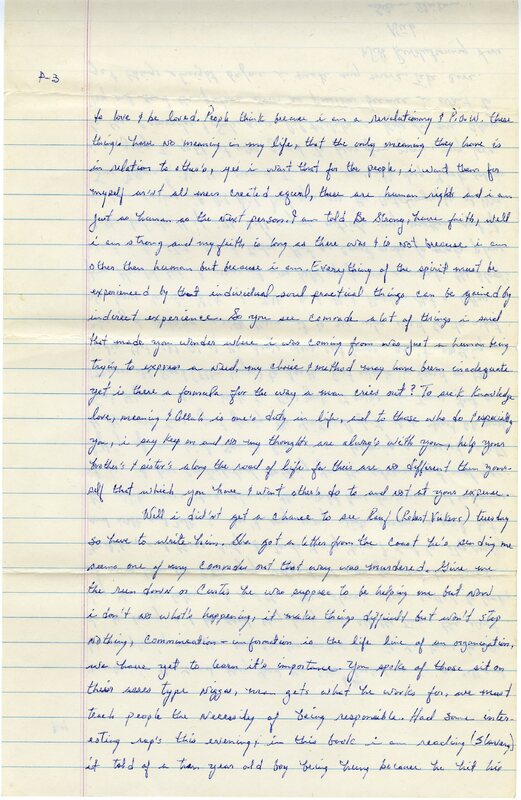 P-3
to love & be loved. People think because i am a revolutionary & P.O.W. these
things have no meaning in my life, that the only meaning they have is
in relation to other's, yes i want that for the people, i want them for
myself arn't all men created equal, these are human rights and i am
just as human as the next person. I am told Be Strong, have faith, well
i am strong and my faith is long as there was & is not because i am
other than human but because i am. Everything of the spirit must be
experienced by that individual soul practical things can be gained by
indirect experience. So you see comrade alot of things i said
that made you wonder where i was coming from was just a human being
trying to express a need, my choice & method may have been inadequate
yet is there a formula for the way a man cries out? To seek knowledge
love, meaning & Allah is one's duty in life, and to those who do & especially
you, i say keep on and no my thoughts are alway's with you, help your
brother's & sister's along the road of life for their are no different then your-
self that which you have & want other's do to and not at your expense.
Well i did'nt get a chance to see Rauf (Robert Vickers) tuesday
so have to write him. Sha got a letter from the coast he's sending me
seems one of my comrades out that way was murdered. Give me
the run down on Curtis he was suppose to be helping me but now
i don't no what's happening, it makes things difficult but won't stop
nothing, communication - information is the life line of an organization,
we have yet to learn it's importance. You spoke of those sit on
their asses type niggas, man gets what he works for, we must
teach people the necessity of being responsible. Had some inter-
esting rap's this evening; in this book i am reading (Slavery)
it told of a year old boy being hung because he hit his